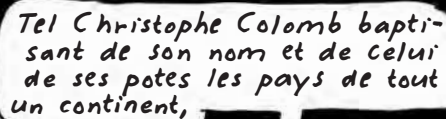 Tel Christophe Colomb bapti-
sant de son nom et de celui
de ses potes les pays de tout
un continent,